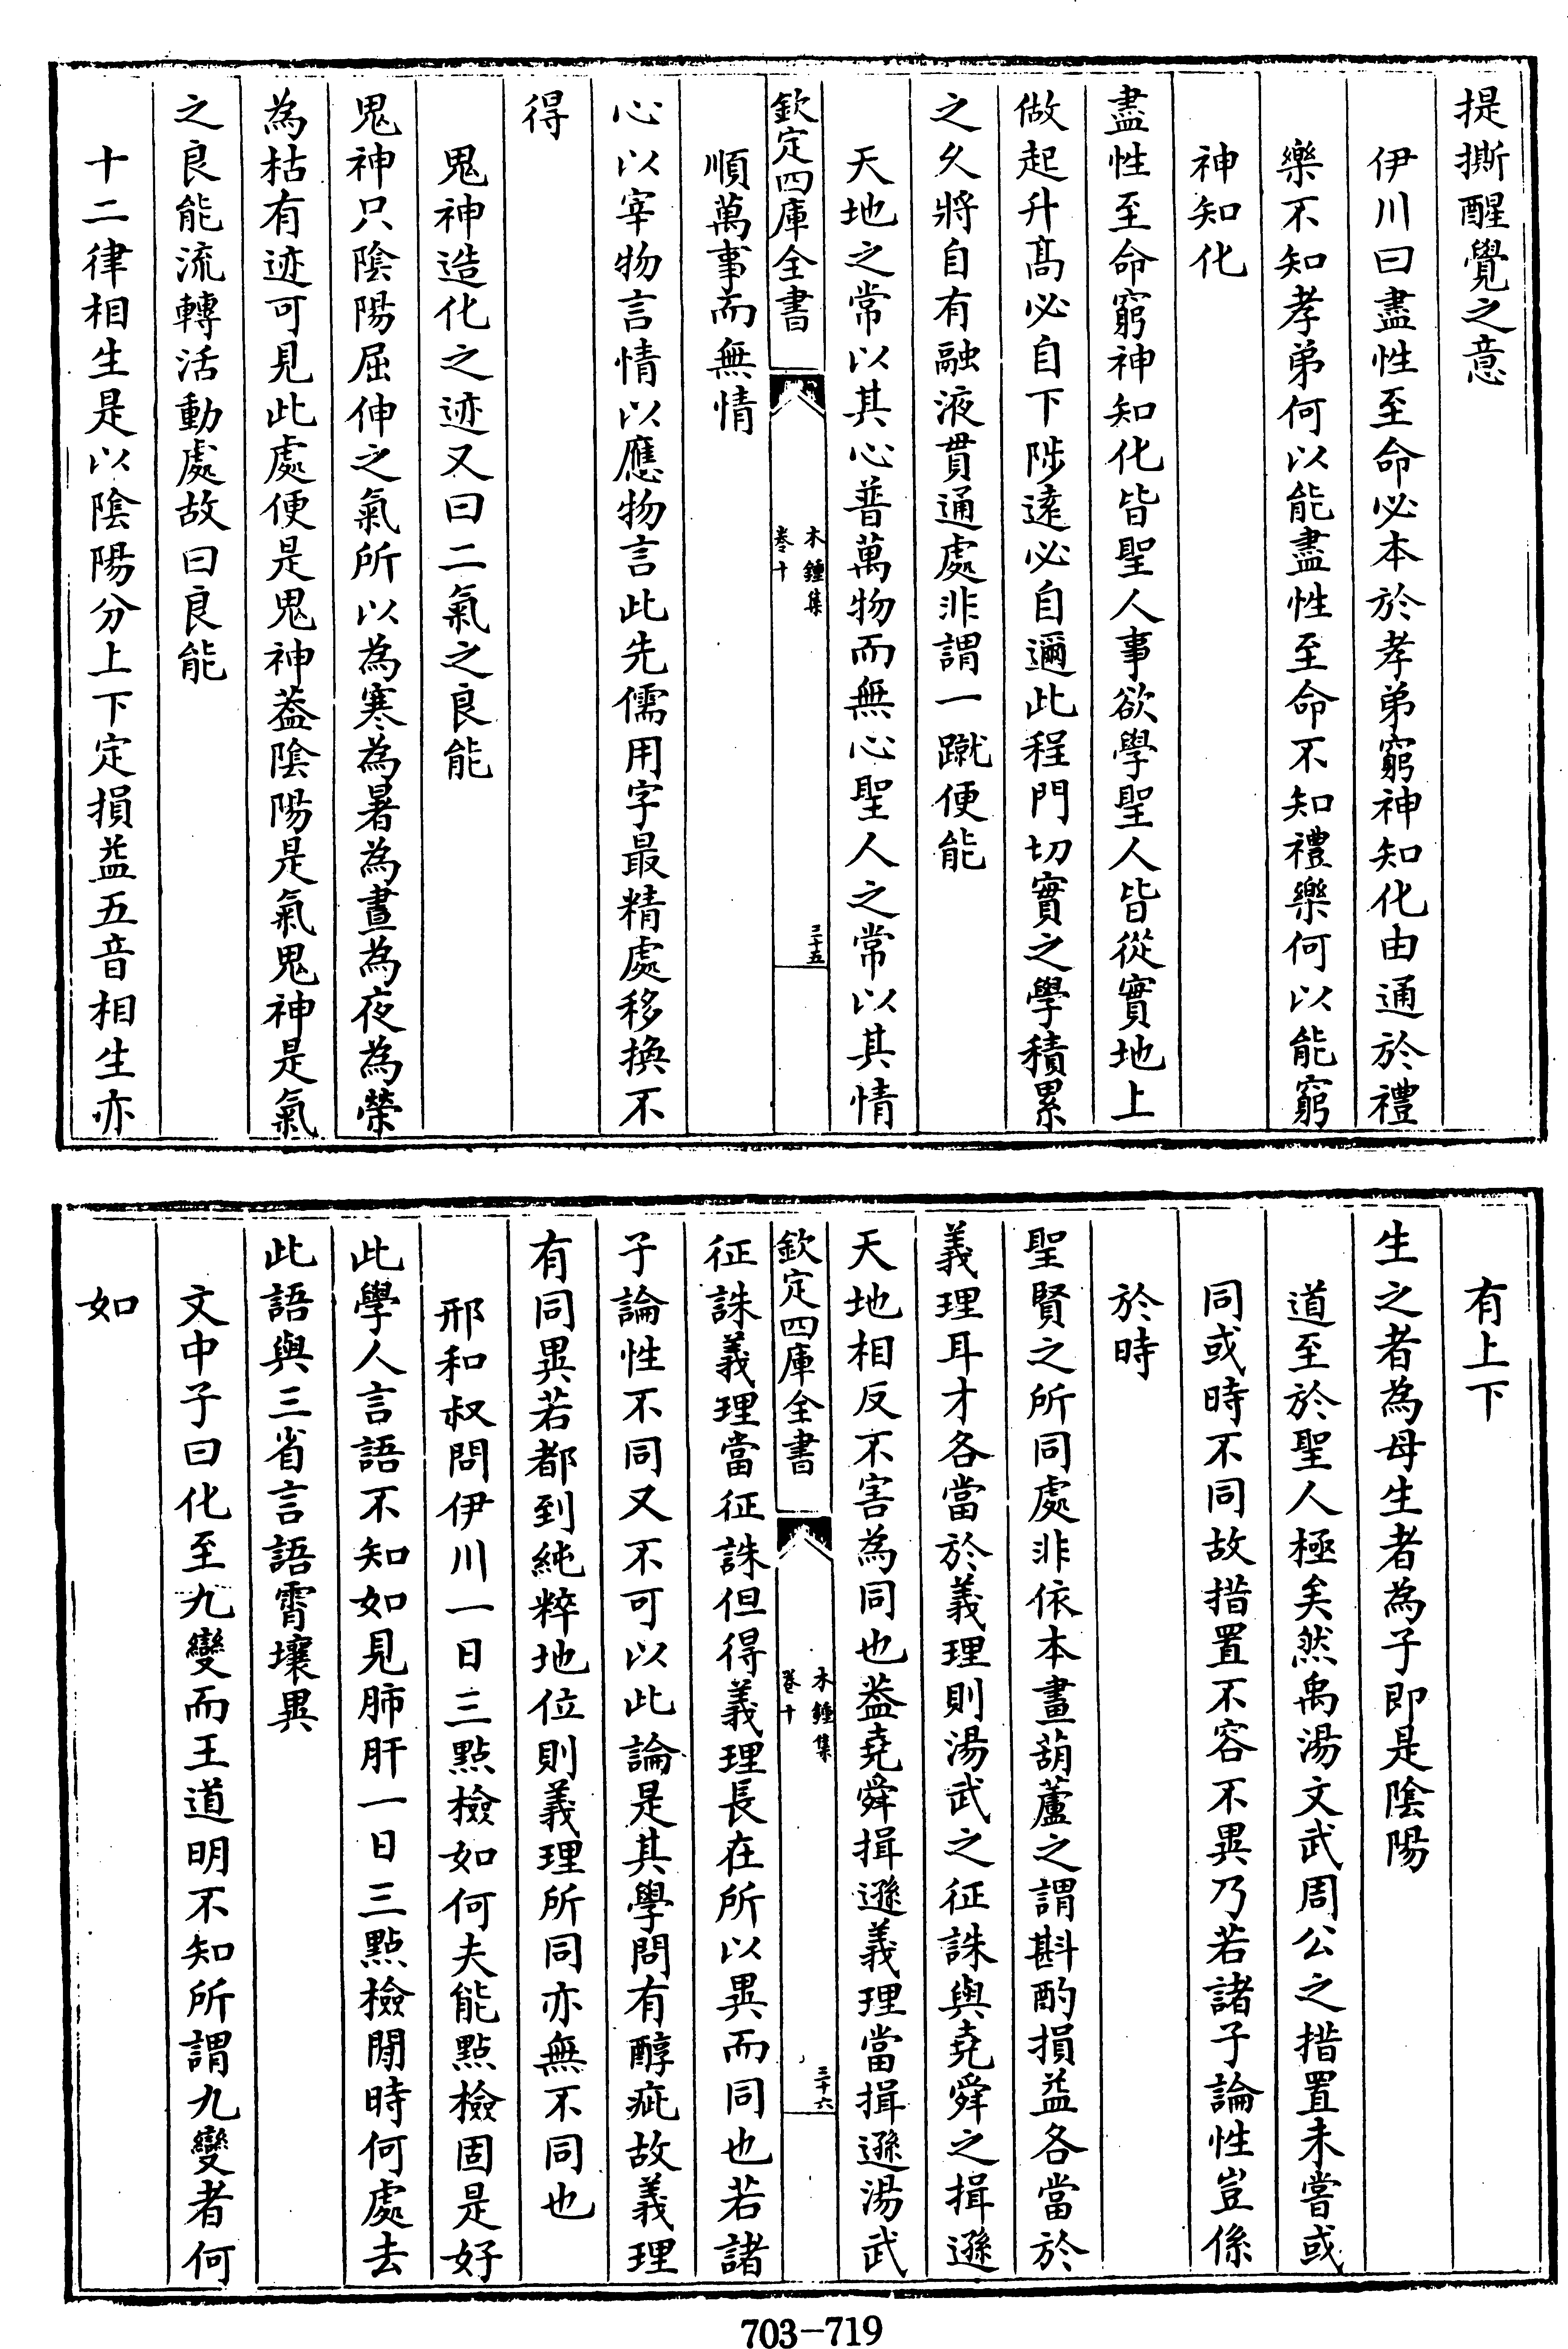 提撕醒覺之意
伊川曰盡性至命必本於孝弟窮神知化由通於禮
樂不知孝弟何以能盡性至命不知禮樂何以能窮
神知化
盡性至命窮神知化皆聖人事欲學聖人皆從實地上
做起升髙必自下陟逺必自邇此程門切實之學積累
之乆將自有融液貫通處非謂一蹴便能
天地之常以其心普萬物而無心聖人之常以其情
欽定四庫全書
木鍾集
卷十
三十五
順萬事而無情
心以宰物言情以應物言此先儒用字最精處移換不
得
鬼神造化之迹又曰二氣之良能
鬼神只隂陽屈伸之氣所以為寒為暑為晝為夜為榮
為枯有迹可見此處便是鬼神葢隂陽是氣鬼神是氣
之良能流轉活動處故曰良能
十二律相生是以隂陽分上下定損益五音相生亦
有上下
生之者為母生者為子即是隂陽
道至於聖人極矣然禹湯文武周公之措置未嘗或
同或時不同故措置不容不異乃若諸子論性豈係
於時
聖賢之所同處非依本畫葫蘆之謂斟酌損益各當於
義理耳才各當於義理則湯武之征誅與堯舜之揖遜
天地相反不害為同也葢堯舜揖遜義理當揖遜湯武
欽定四庫全書
木鍾集
卷十
三十六
征誅義理當征誅但得義理長在所以異而同也若諸
子論性不同又不可以此論是其學問有醇疵故義理
有同異若都到純粹地位則義理所同亦無不同也
邢和叔問伊川一日三點檢如何夫能點檢固是好
此學人言語不知如見肺肝一日三點檢閒時何處去
此語與三省言語霄壤異
文中子曰化至九變而王道明不知所謂九變者何
如
703-719